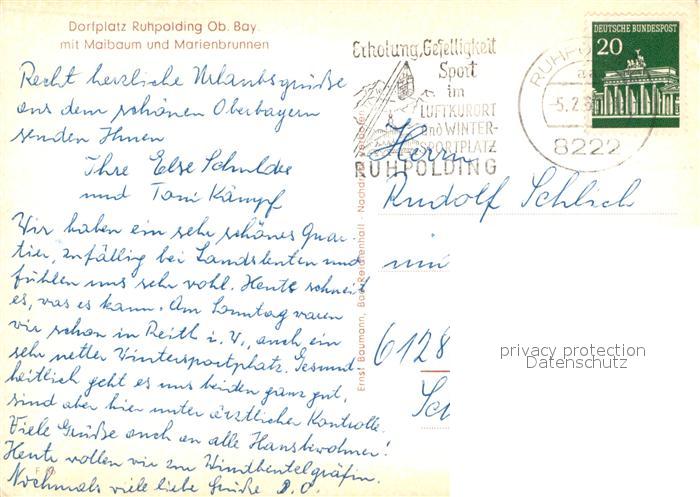 Dorfplatz Ruhpolding Ob. Bay.
mit Maibaum und Marienbrunnen
Recht herzliche Urlaubsgrüße
aus dem schönen Oberbayern
senden Ihnen
Ihre Else Schuldee
und Toni Kämpf
Wir haben ein sehr schönes Quar-
tier, zufällig bei Landsleuten und
fühlen uns sehr wohl. Heute schneit
es, was es kann. Am Sonntag waren
wir schon in Reith i. W., auch ein
sehr netter Wintersportplatz. Gesund-
heitlich geht es uns beiden ganz gut,
sind aber hier unter ärztlicher Kontrolle.
Viele Grüße auch an alle Hausbewohner!
Heute wollen wir zur Windbeutelgräfin.
Nochmals viele liebe Grüße D.O.
Ernst Baumann, Bad Reichenhall - Nachdr. verboten
Erholung, Geselligkeit
Sport
im
LUFTKURORT
und WINTER-
SPORTPLATZ
RUHPOLDING
DEUTSCHE BUNDESPOST
20
8222
Herrn
Rudolf Schlich
6128
privacy protection
Datenschutz